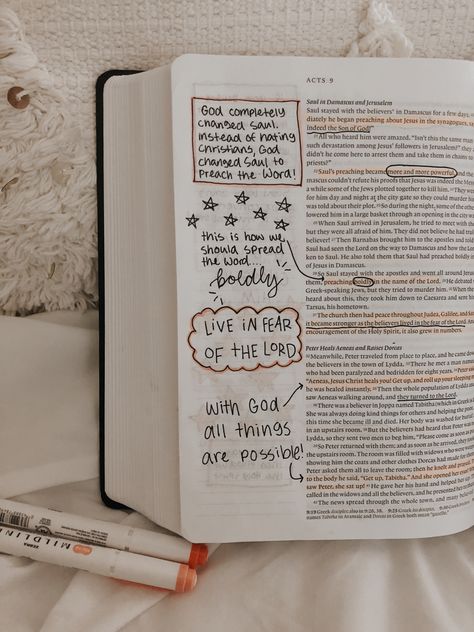 ACTS 9
God completely
changed Saul.
Instead of hating
Christians, God
changed Saul to
Preach the Word!
this is how we
should spread
the Word....
boldly
LIVE IN FEAR
OF THE LORD
With God
all things
are possible!
Saul in Damascus and Jerusalem
Saul stayed with the believers in Damascus for a few days.
diately he began preaching about Jesus in the synagogues,
indeed the Son of God!"
21 All who heard him were amazed. "Isn't this the same man
such devastation among Jesus' followers in Jerusalem?" they
didn't he come here to arrest them and take them in chains
priests?"
22 Saul's preaching became more and more powerful, and the
mascus couldn't refute his proofs that Jesus was indeed the
a while some of the Jews plotted together to kill him. They
for him day and night at the city gate so they could murder
was told about their plot. So during the night, some of the other
lowered him in a large basket through an opening in the city
When Saul arrived in Jerusalem, he tried to meet with
but they were all afraid of him. They did not believe he had
believer! Then Barnabas brought him to the apostles and
Saul had seen the Lord on the way to Damascus and how the
ken to Saul. He also told them that Saul had preached boldly
of Jesus in Damascus.
So Saul stayed with the apostles and went all around
them, preaching boldly in the name of the Lord. He debated
Greek-speaking Jews, but they tried to murder him. When
heard about this, they took him down to Caesarea and sent
Tarsus, his hometown.
The church then had peace throughout Judea, Galilee, and
it became stronger as the believers lived in the fear of the Lord.
encouragement of the Holy Spirit, it also grew in numbers.
Peter Heals Aeneas and Raises Dorcas
Meanwhile, Peter traveled from place to place, and he came
the believers in the town of Lydda. There he met a man
who had been paralyzed and bedridden for eight years.
"Aeneas, Jesus Christ heals you! Get up, and roll up your sleeping
he was healed instantly. Then the whole population of Lydda
saw Aeneas walking around, and they turned to the Lord.
There was a believer in Joppa named Tabitha (which in Greek
She was always doing kind things for others and helping the
this time she became ill and died. Her body was washed for
in an upstairs room. But the believers had heard that Peter was
Lydda, so they sent two men to beg him, "Please come as soon as
So Peter returned with them; and as soon as he arrived, they
the upstairs room. The room was filled with widows who were
showing him the coats and other clothes Dorcas had made for
Peter asked them all to leave the room; then he knelt and
to the body he said, "Get up, Tabitha." And she opened her
saw Peter, she sat up! He gave her his hand and helped her
called in the widows and all the believers, and he presented her
The news spread through the whole town, and many
names Tabitha in Aramaic and Dorcas in Greek both mean "gazelle."
ZEBRA
MILDLINER